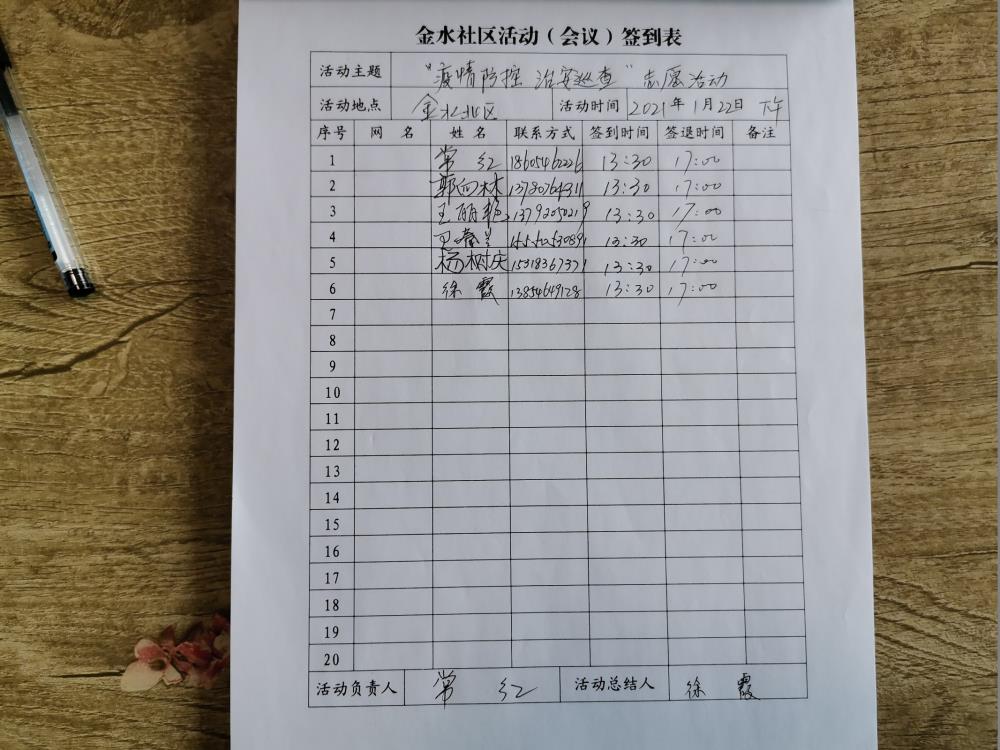 金水社区活动（会议）签到表
活动主题 "疫情防控 治安巡查"志愿活动
活动地点 金水北区 活动时间 2021年1月22日 下午
序号 网 名 姓 名 联系方式 签到时间 签退时间 备注
1 常 红 18605462226 13:30 17:00
2 郭向林 13780764311 13:30 17:00
3 王丽艳 13792050219 13:30 17:00
4 13:30 17:00
5 杨树庆 15318367371 13:30 17:00
6 徐 霞 13854649128 13:30 17:00
7
8
9
10
11
12
13
14
15
16
17
18
19
20
活动负责人 常 红 活动总结人 徐 霞